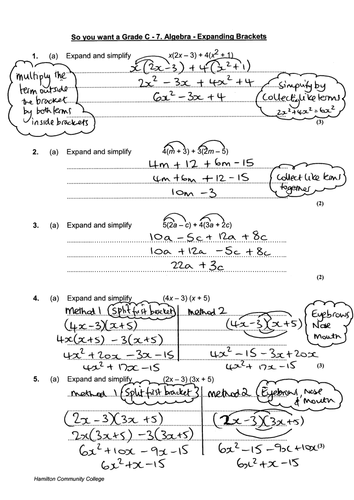 So you want a Grade C - 7. Algebra - Expanding Brackets
1. (a) Expand and simplify x(2x – 3) + 4(x² + 1)
x(2x-3) + 4(x²+1)
2x² - 3x + 4x² + 4
6x² - 3x + 4
multiply the
term outside
the bracket
by both terms
inside brackets
Simplify by
Collect like terms
2x²+4x²=6x²
(3)
2. (a) Expand and simplify 4(m + 3) + 3(2m – 5)
4m + 12 + 6m - 15
4m + 6m + 12 - 15
10m - 3
Collect like terms
together
(2)
3. (a) Expand and simplify 5(2a – c) + 4(3a + 2c)
10a - 5c + 12a + 8c
10a + 12a - 5c + 8c
22a + 3c
(2)
4. (a) Expand and simplify (4x – 3)(x + 5)
Method 1 Split first bracket
(4x-3)(x+5)
4x(x+5) - 3(x+5)
4x² + 20x - 3x - 15
4x² + 17x - 15
method 2
Eyebrows
Nose
Mouth
(4x-3)(x+5)
4x² - 15 - 3x + 20x
4x² + 17x - 15
(3)
5. (a) Expand and simplify (2x – 3)(3x + 5)
method 1 Split first bracket
(2x-3)(3x+5)
2x(3x+5) - 3(3x+5)
6x² + 10x - 9x - 15
6x² + x - 15
method 2 Eyebrows, nose
& mouth
(2x-3)(3x+5)
6x² - 15 - 9x + 10x
(3)
6x² + x - 15
Hamilton Community College